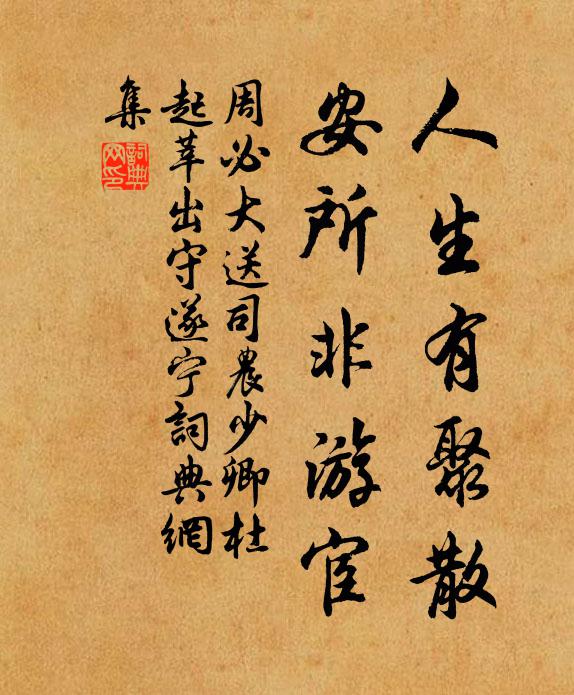 人生有聚散
安所非游宦
周必大送司農少卿杜
起莘出守遂宁詞典網
集
詞典
网印